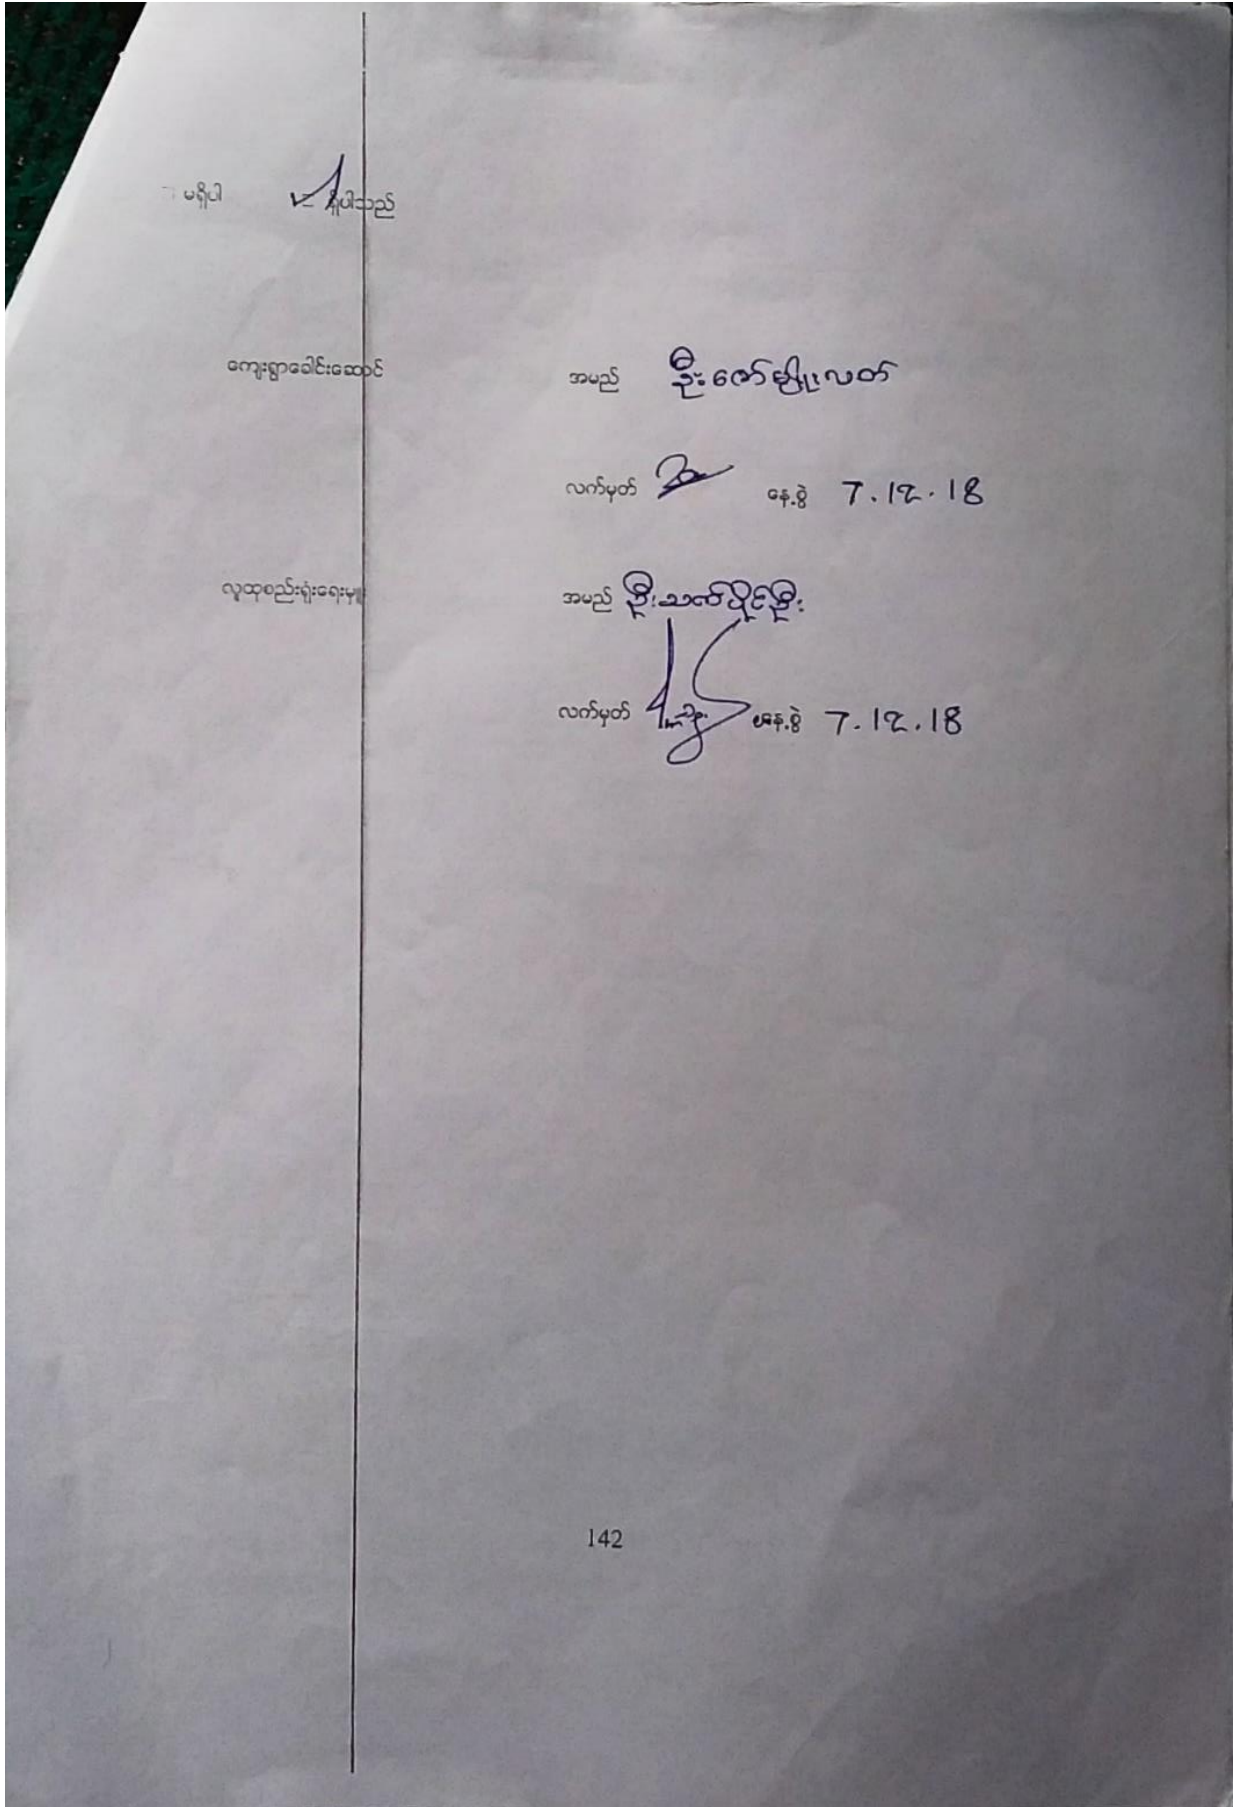 မရှိပါ ရှိပါသည်
ကျေးရွာခေါင်းဆောင် အမည် ဦးဇော်မျိုးလတ်
လက်မှတ် နေ့စွဲ 7.12.18
လူထုစည်းရုံးရေးမှူး အမည် ဦးသက်ပိုင်ဦး
လက်မှတ် နေ့စွဲ 7.12.18
142